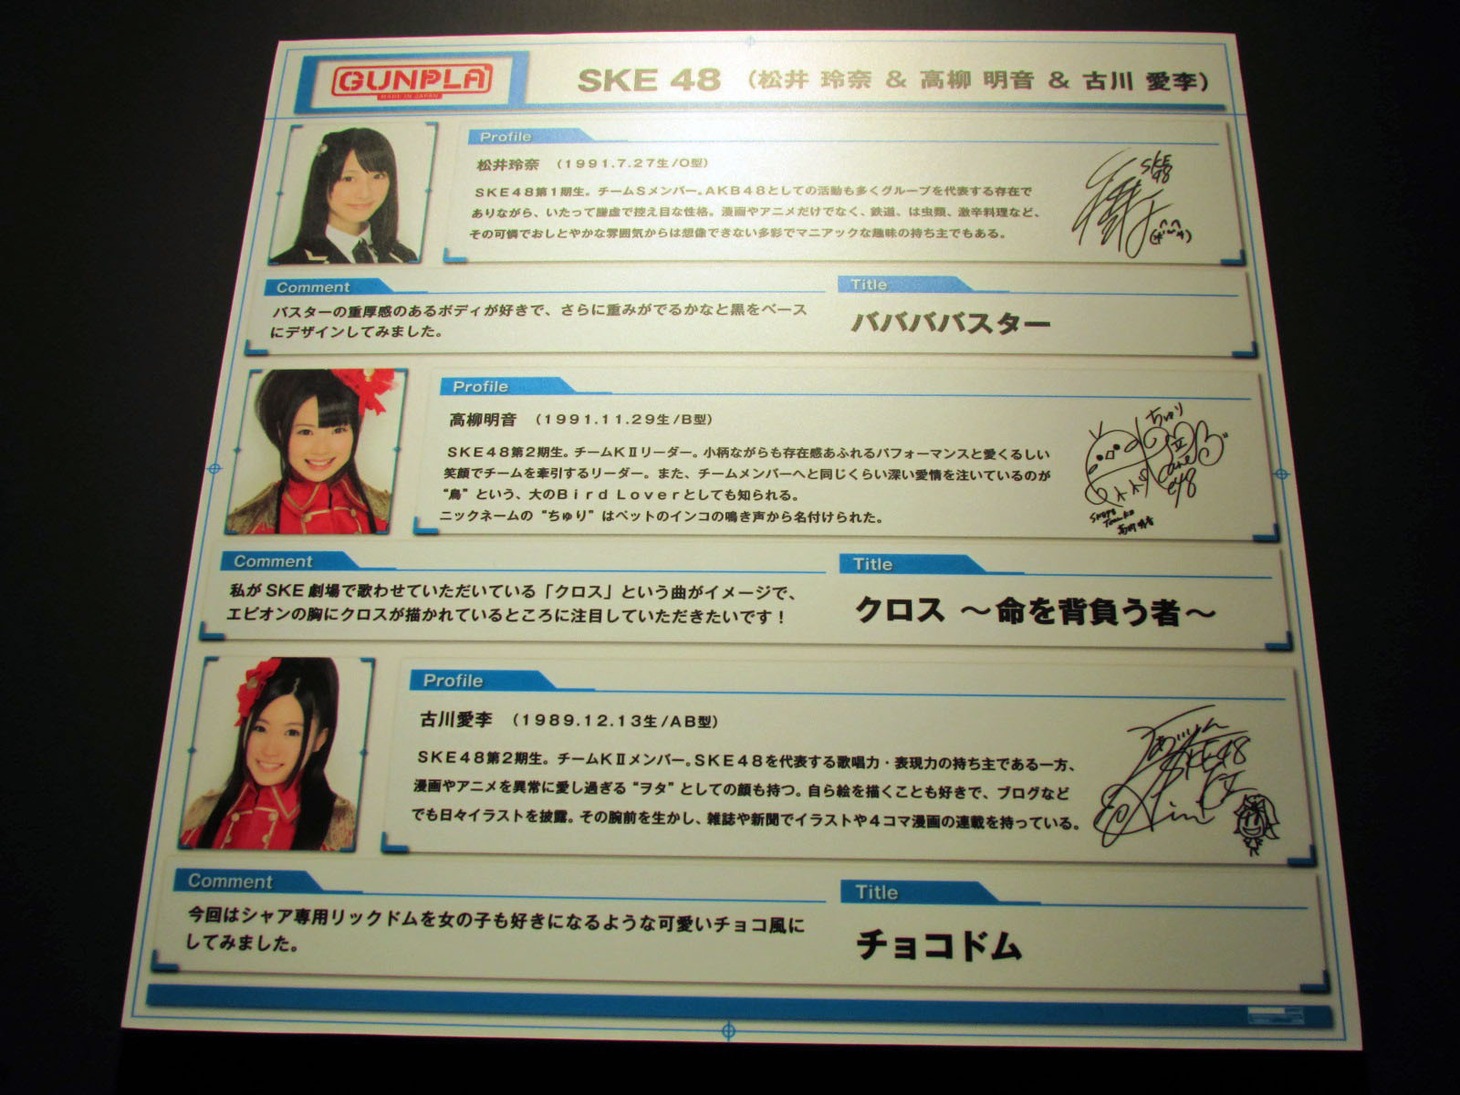 GUNPLA
MADE IN JAPAN
SKE 48 （松井 玲奈 & 高柳 明音 & 古川 愛李）
Profile
松井玲奈 （1991.7.27生/O型）
SKE48第1期生。チームSメンバー。AKB48としての活動も多くグループを代表する存在で
ありながら、いたって謙虚で控え目な性格。漫画やアニメだけでなく、鉄道、は虫類、激辛料理など、
その可憐でおしとやかな雰囲気からは想像できない多彩でマニアックな趣味の持ち主でもある。
SKE
48
Comment
バスターの重厚感のあるボディが好きで、さらに重みがでるかなと黒をベース
にデザインしてみました。
Title
バババババスター
Profile
高柳明音 （1991.11.29生/B型）
SKE48第2期生。チームKⅡリーダー。小柄ながらも存在感あふれるパフォーマンスと愛くるしい
笑顔でチームを牽引するリーダー。また、チームメンバーへと同じくらい深い愛情を注いでいるのが
“鳥”という、大のBird Loverとしても知られる。
ニックネームの“ちゅり”はペットのインコの鳴き声から名付けられた。
ちゅり
48
Comment
私がSKE劇場で歌わせていただいている「クロス」という曲がイメージで、
エピオンの胸にクロスが描かれているところに注目していただきたいです！
Title
クロス ～命を背負う者～
Profile
古川愛李 （1989.12.13生/AB型）
SKE48第2期生。チームKⅡメンバー。SKE48を代表する歌唱力・表現力の持ち主である一方、
漫画やアニメを異常に愛し過ぎる“ヲタ”としての顔も持つ。自ら絵を描くことも好きで、ブログなど
でも日々イラストを披露。その腕前を生かし、雑誌や新聞でイラストや4コマ漫画の連載を持っている。
SKE48
Comment
今回はシャア専用リックドムを女の子も好きになるような可愛いチョコ風に
してみました。
Title
チョコドム